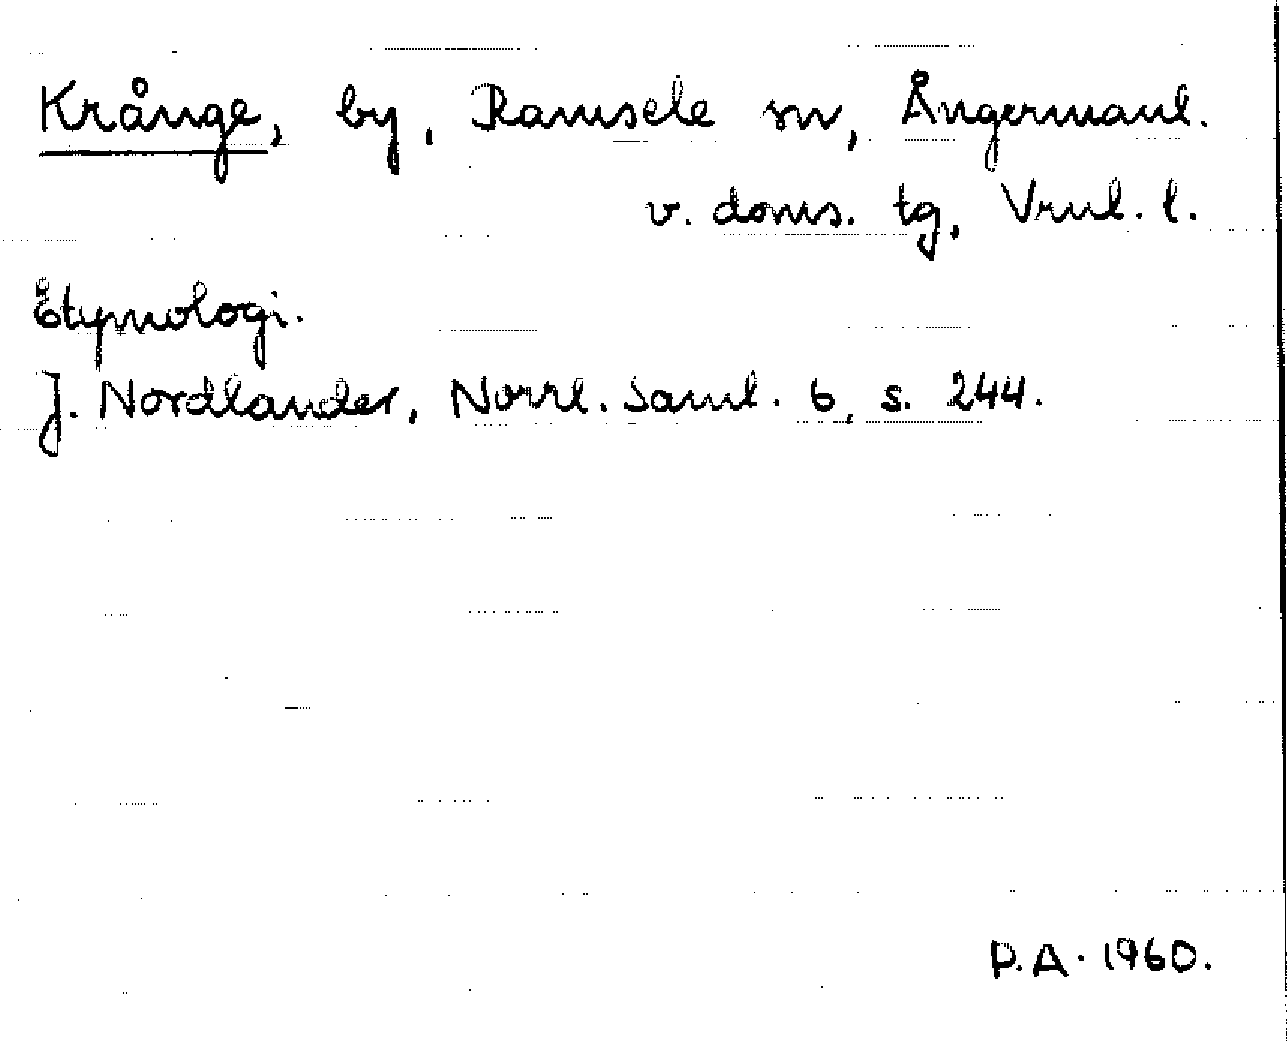 Krånge, by, Ramsele sn, Ångermanl.
v. doms. tg, Vrnl. l.
Etymologi.
J. Nordlander, Norrl. Saml. 6, s. 244.
P.A. 1960.